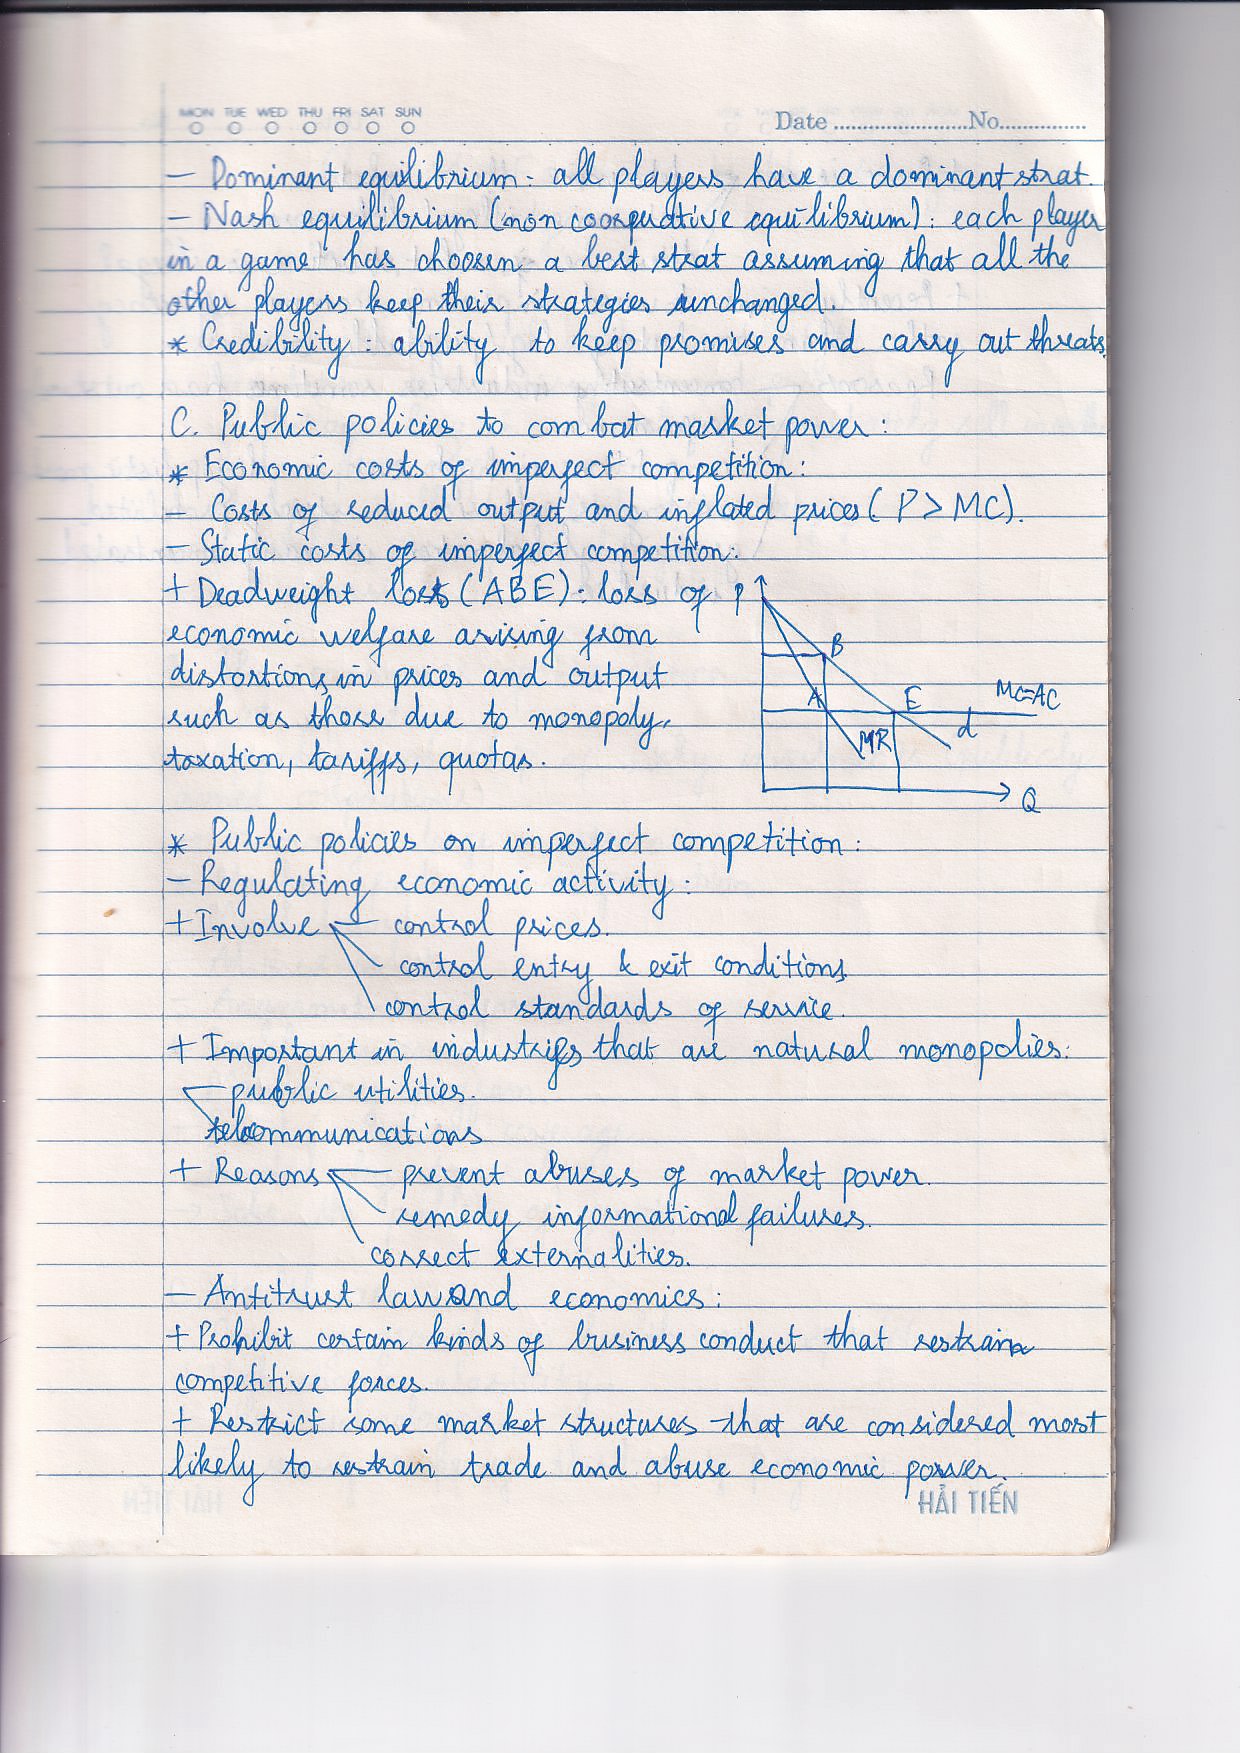 MON TUE WED THU FRI SAT SUN
Date No.
– Dominant equilibrium: all players have a dominant strat.
– Nash equilibrium (non coorperative equilibrium): each player
in a game has choosen a best strat assuming that all the
other players keep their strategies unchanged.
* Credibility: ability to keep promises and carry out threats.
C. Public policies to combat market power:
* Economic costs of imperfect competition:
– Costs of reduced output and inflated prices (P > MC).
– Static costs of imperfect competition:
+ Deadweight loss (ABE): loss of
economic welfare arising from
distortions in prices and output
such as those due to monopoly,
taxation, tariffs, quotas.
P
B
A
E
MC=AC
d
MR
Q
* Public policies on imperfect competition:
– Regulating economic activity:
+ Involve control prices.
control entry & exit conditions
control standards of service.
+ Important in industries that are natural monopolies:
public utilities.
telecommunications
+ Reasons prevent abuses of market power.
remedy informational failures.
correct externalities.
– Antitrust law and economics:
+ Prohibit certain kinds of business conduct that restrain
competitive forces.
+ Restrict some market structures that are considered most
likely to restrain trade and abuse economic power.
HẢI TIẾN